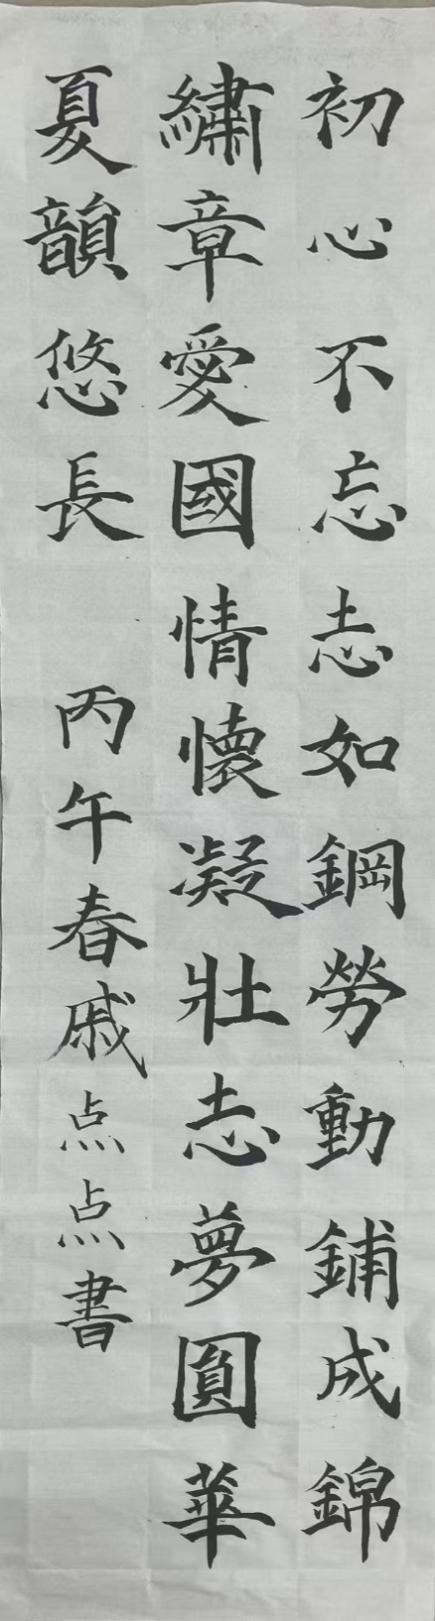 初心不忘志如鋼勞動鋪成錦
繡章愛國情懷凝壯志夢圓華
夏韻悠長 丙午春戚点点書